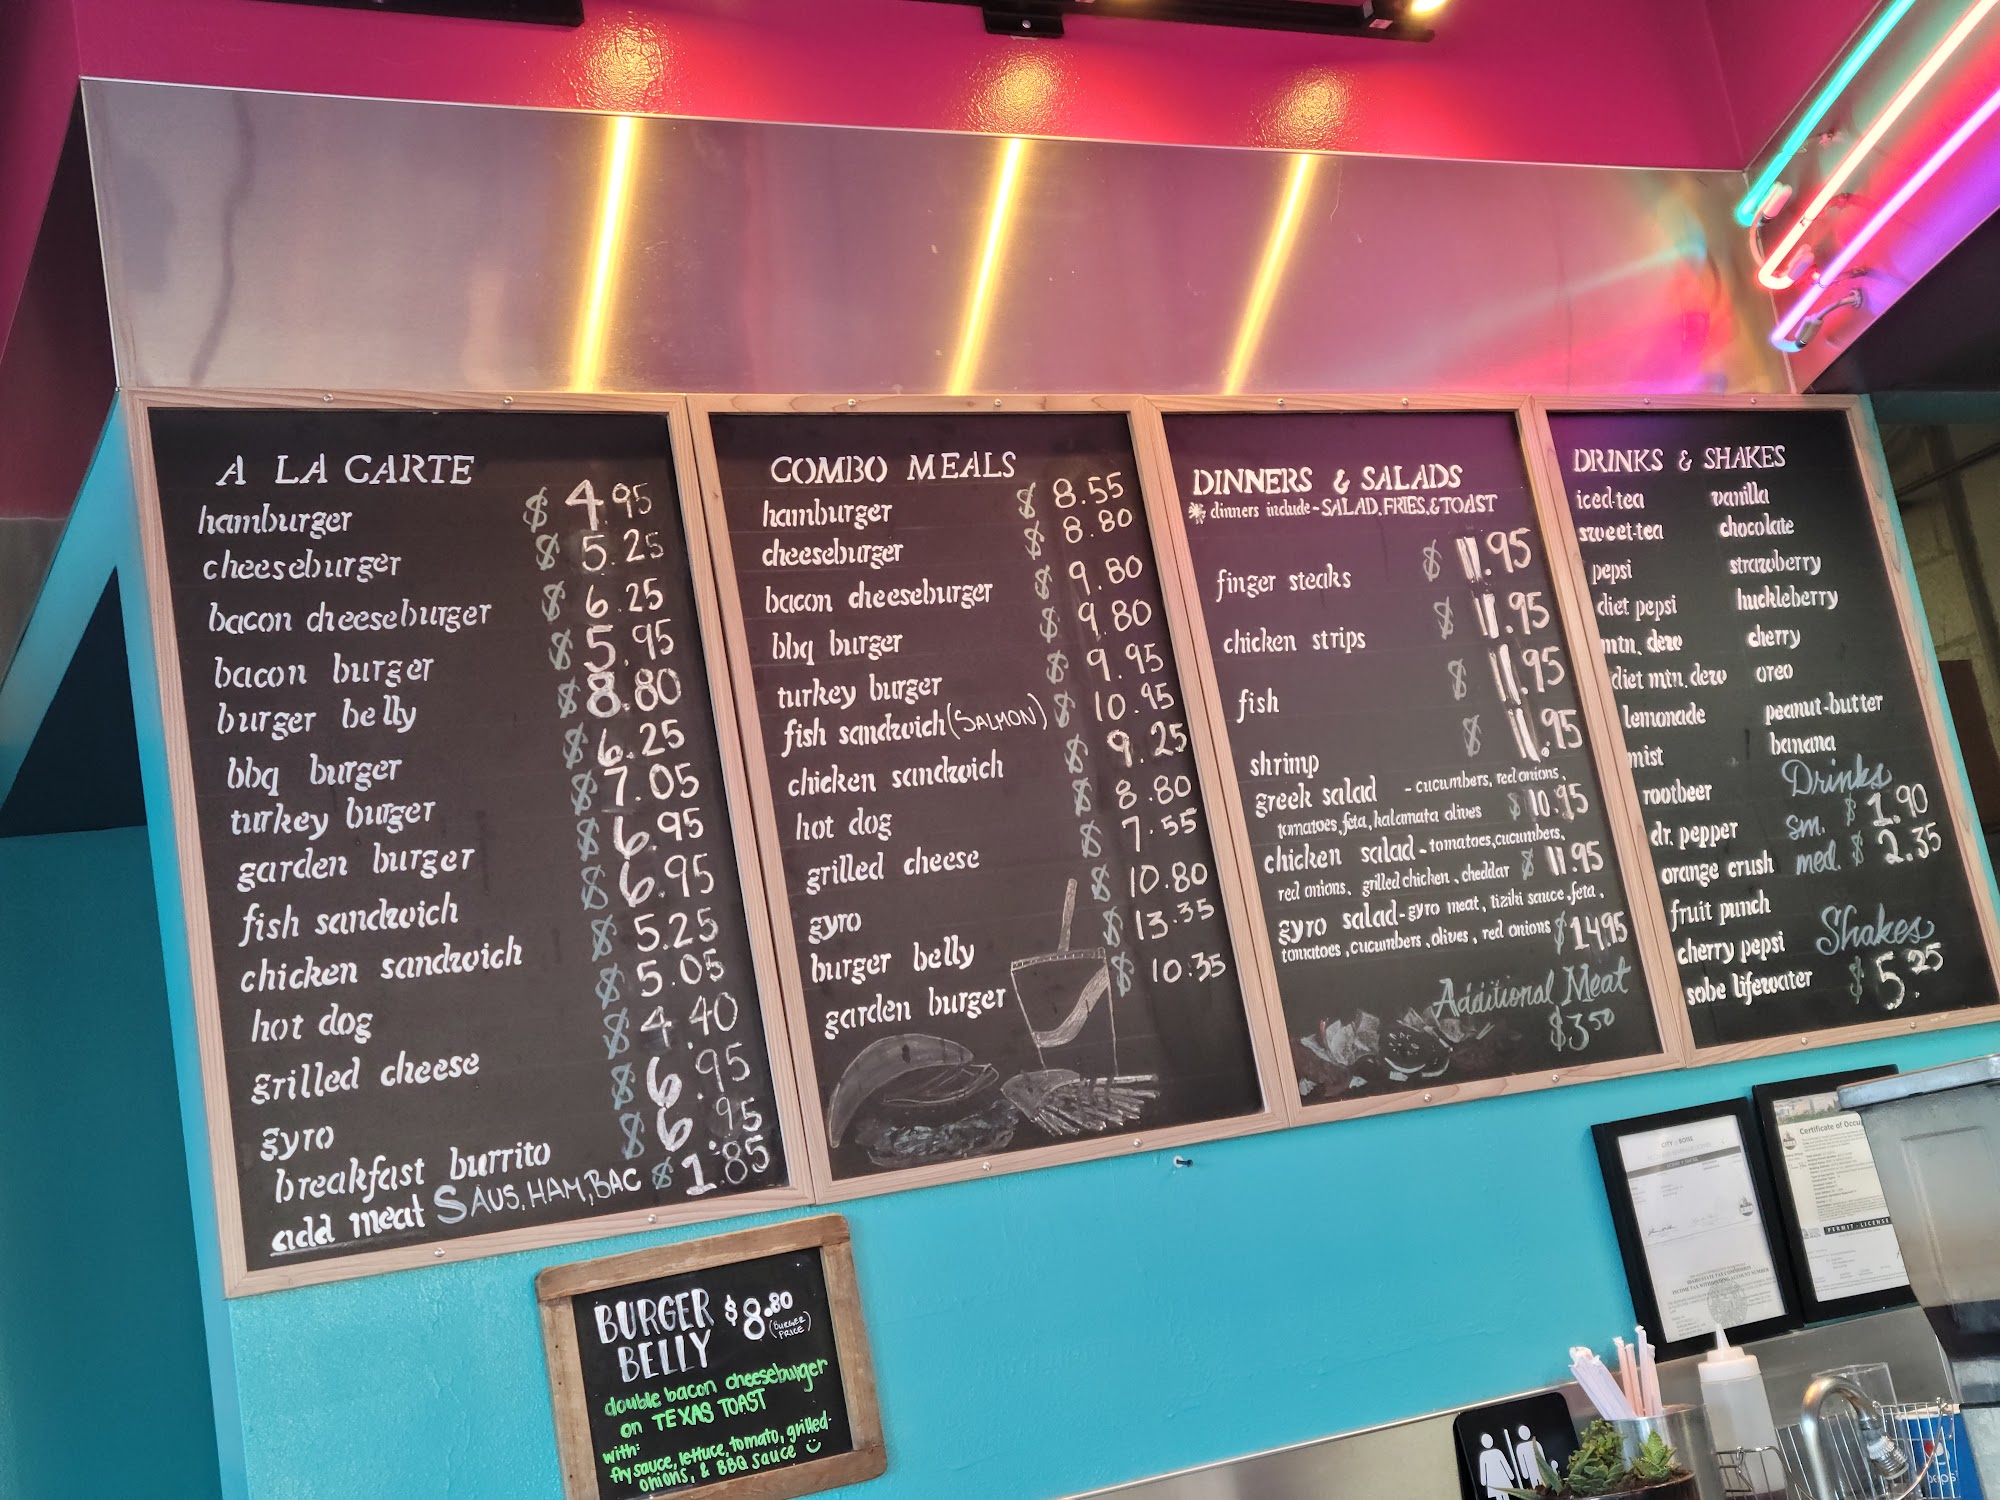 A LA CARTE
hamburger $ 4.95
cheeseburger $ 5.25
bacon cheeseburger $ 6.25
bacon burger $ 5.95
burger belly $ 8.80
bbq burger $ 6.25
turkey burger $ 7.05
garden burger $ 6.95
fish sandwich $ 6.95
chicken sandwich $ 5.25
hot dog $ 5.05
grilled cheese $ 4.40
gyro $ 6.95
breakfast burrito $ 6.95
add meat SAUS, HAM, BAC $ 1.85
COMBO MEALS
hamburger $ 8.55
cheeseburger $ 8.80
bacon cheeseburger $ 9.80
bbq burger $ 9.80
turkey burger $ 9.95
fish sandwich (SALMON) $ 10.95
chicken sandwich $ 9.25
hot dog $ 8.80
grilled cheese $ 7.55
gyro $ 10.80
burger belly $ 13.35
garden burger $ 10.35
DINNERS & SALADS
dinners include - SALAD, FRIES, & TOAST
finger steaks $ 11.95
chicken strips $ 11.95
fish $ 11.95
shrimp $ 11.95
greek salad - cucumbers, red onions,
tomatoes, feta, kalamata olives $ 10.95
chicken salad - tomatoes, cucumbers,
red onions, grilled chicken, cheddar $ 11.95
gyro salad - gyro meat, tiziki sauce, feta,
tomatoes, cucumbers, olives, red onions $ 14.95
Additional Meat
$3.50
DRINKS & SHAKES
iced-tea
sweet-tea
pepsi
diet pepsi
mtn. dew
diet mtn. dew
lemonade
mist
rootbeer
dr. pepper
orange crush
fruit punch
cherry pepsi
sobe lifewater
vanilla
chocolate
strawberry
huckleberry
cherry
oreo
peanut-butter
banana
Drinks
sm. $ 1.90
med. $ 2.35
Shakes
$ 5.25
BURGER $8.80
BELLY (BURGER PRICE)
double bacon cheeseburger
on TEXAS TOAST
with:
fry sauce, lettuce, tomato, grilled-
onions, & BBQ sauce
CITY of BOISE
IDAHO STATE TAX COMMISSION
INCOME TAX WITHHOLDING ACCOUNT NUMBER
Certificate of Occu
PERMIT - LICENSE